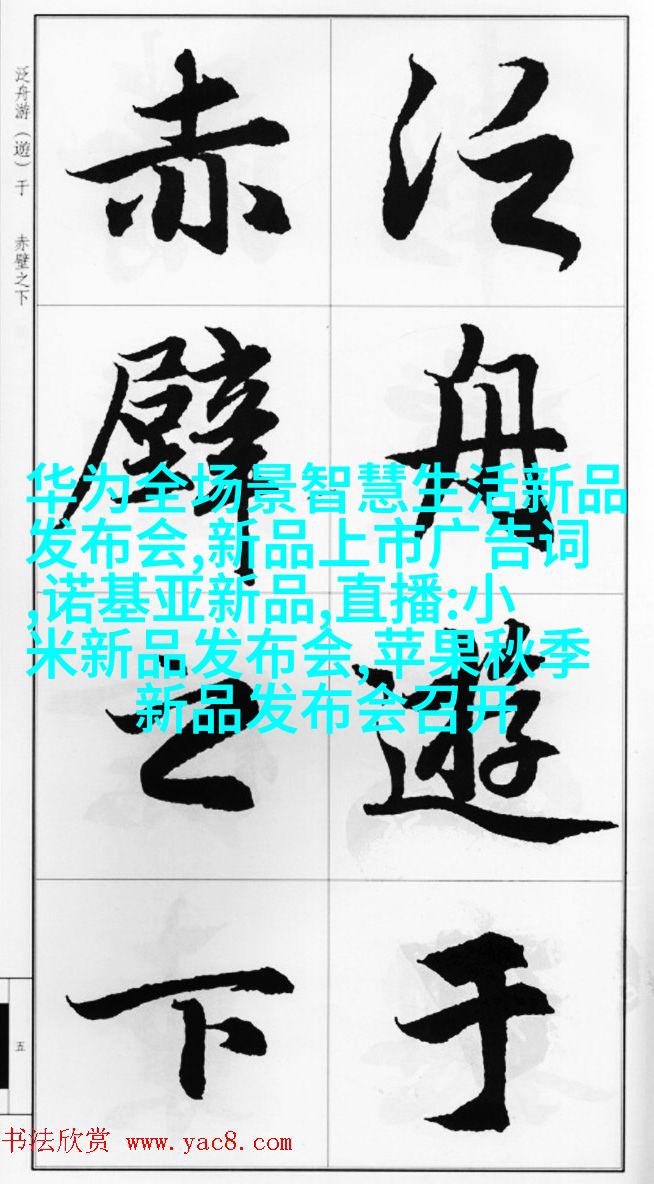 泛舟遊于
赤壁之下
泛舟游（遊）于 赤壁之下
华为全场景智慧生活新品
发布会,新品上市广告词
,诺基亚新品,直播:小
米新品发布会,苹果秋季
新品发布会召开
五
书法欣赏 www.yac8.com